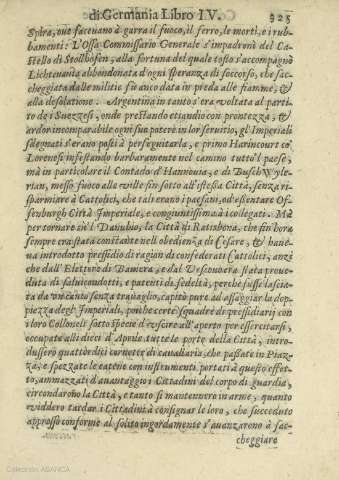 di Germania Libro IV. 925
Spira, oue faceuano à gurra il fuoco, il ferro, le morti, e i rub-
bamenti: L'Ossa Commissario Generale s'impadronì del Ca-
stello di Stollhofen, alla fortuna del quale tosto s'accompagnò
Lichtenaù abbandonata d'ogni speranza di soccorso, che sac-
cheggiata dalle militie fù anco data in preda alle fiamme, &
alla desolatione. Argentina in tanto s'era voltata al parti-
to de i Suezzesi, onde prestando etiandio con prontezza, &
ardor incomparabile ogni suo potere in lor seruitio, gl'Imperiali
sdegnati s'erano posti à perseguitarla, e primo Harincourt co'
Lorenesi infestando barbaramente nel camino tutto'l paese,
mà in particolare il Contado d'Hannouia, e di Buschvvyle-
rian, messo fuoco alle ville sin sotto all'istessa Città, senza ri-
sparmiare à Cattolici, che tali erano i paesani, ed esentare Of-
fenburgh Città Imperiale, e congiuntissima à i collegati. Mà
per tornare sù'l Danubio, la Città di Ratisbona, che fin'hora
sempre era stata constante nell'obedienza di Cesare, & haue-
ua introdotto pressidio di ragion di confederati Cattolici, anzi
che dall'Elettore di Bauiera, e dal Vescouo era stata proue-
duta di saluicondotti, e patenti di fedeltà, perche fusse lascia-
ta da vn canto senza trauaglio, capitò pure ad assaggiar la dop-
piezza degl'Imperiali, poiche certe squadre de pressidiarij con
i loro Collonelli sotto specie d'vscire all'aperto per essercitarsi,
occupate alli dieci d'Aprile tutte le porte della Città, intro-
dussero quattordici cornette di cauallaria, che passate in Piaz-
za, e spezzate le catene con instrumenti portati à questo effet-
to, ammazzati d'auantaggio i Cittadini del corpo di guardia,
circondarono la Città, e tanto si mantennero in arme, quanto
viddero tardar i Cittadini à consignar le loro, che succeduto
appresso conforme al solito ingordamente s'auanzarono à sac-
cheggiare
Colección ABANCA